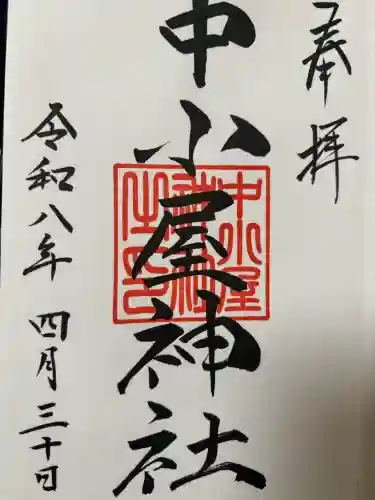 奉拝
中小屋神社
中小屋
神社
之印
令和八年 四月三十日